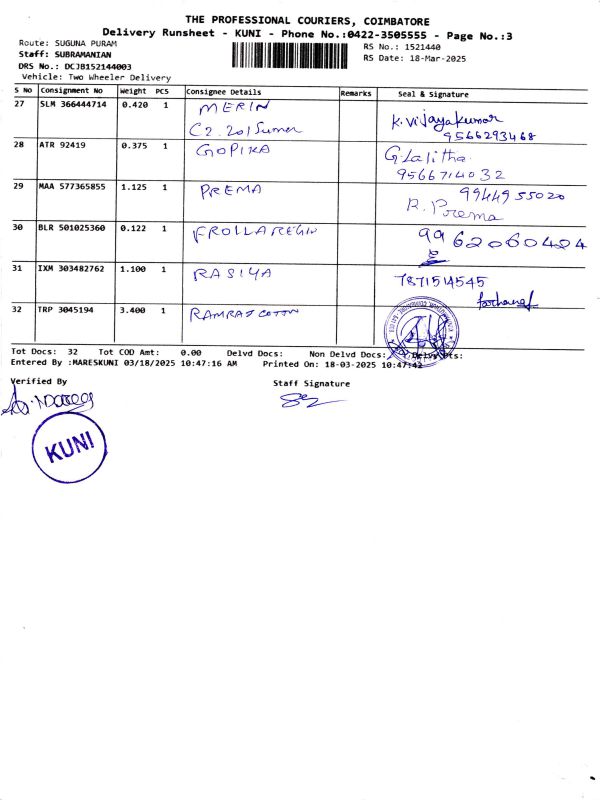 THE PROFESSIONAL COURIERS, COIMBATORE
Delivery Runsheet - KUNI - Phone No.:0422-3505555 - Page No.:3
Route: SUGUNA PURAM
RS No.: 1521440
Staff: SUBRAMANIAN
RS Date: 18-Mar-2025
DRS No.: DCJB152144003
Vehicle: Two Wheeler Delivery
S No Consignment No Weight PCS Consignee Details Remarks Seal & Signature
27 SLM 366444714 0.420 1 MERIN
C2.201 Sumer
K. Vijayakumar
9566293468
28 ATR 92419 0.375 1 GOPIKA
G. Lalitha
9566714032
29 MAA 577365855 1.125 1 PREMA
9944955020
R. Prema
30 BLR 501025360 0.122 1 FROLLA REGIN
9962060404
31 IXM 303482762 1.100 1 RASIYA
7871514545
32 TRP 3045194 3.400 1 RAMRAJ COTTON
Tot Docs: 32 Tot COD Amt: 0.00 Delvd Docs: Non Delvd Docs: Delvd Pts:
Entered By :MARESKUNI 03/18/2025 10:47:16 AM Printed On: 18-03-2025 10:47:42
Verified By
Staff Signature
KUNI